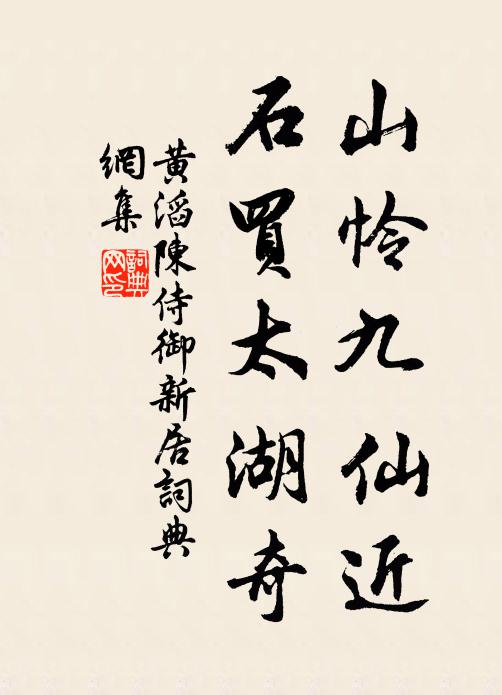 山怜九仙近
石買太湖奇
黃滔陳侍御新居詞典
網集
詞典網印